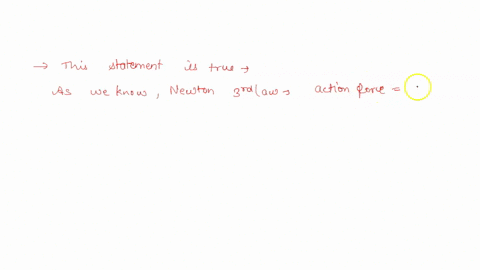 → This statement is true →
As we know, Newton 3rd law → action force =